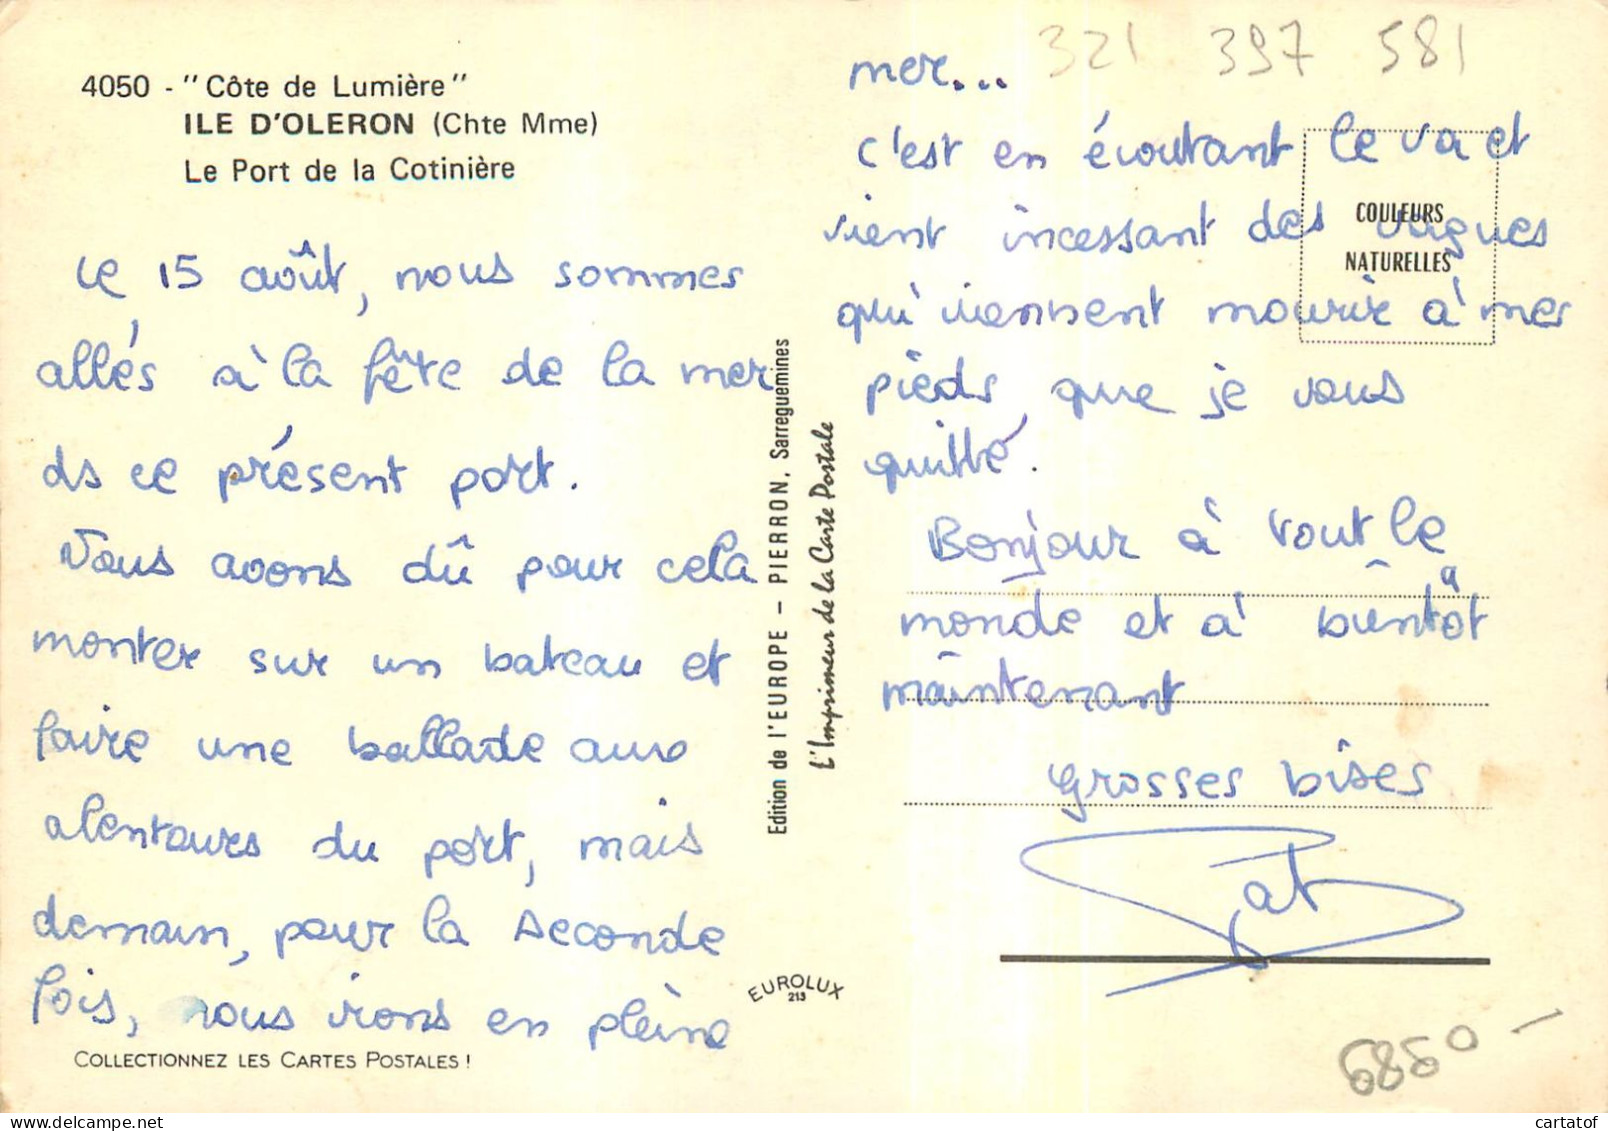 4050 - "Côte de Lumière"
ILE D'OLERON (Chte Mme)
Le Port de la Cotinière
Le 15 août, nous sommes
allés à la fête de la mer
ds ce présent port.
Nous avons dû pour cela
monter sur un bateau et
faire une ballade aux
alentours du port, mais
demain, pour la seconde
fois, nous irons en pleine
COLLECTIONNEZ LES CARTES POSTALES !
Edition de l'EUROPE - PIERRON, Sarreguemines
L'Imprimeur de la Carte Postale
EUROLUX
213
321 397 581
mer...
c'est en écoutant le va et
vient incessant des vagues
qui viennent mourir à mes
pieds que je vous
quitte.
COULEURS
NATURELLES
Bonjour à tout le
monde et à bientôt
maintenant
grosses bises
Pat
6850 -
cartatof